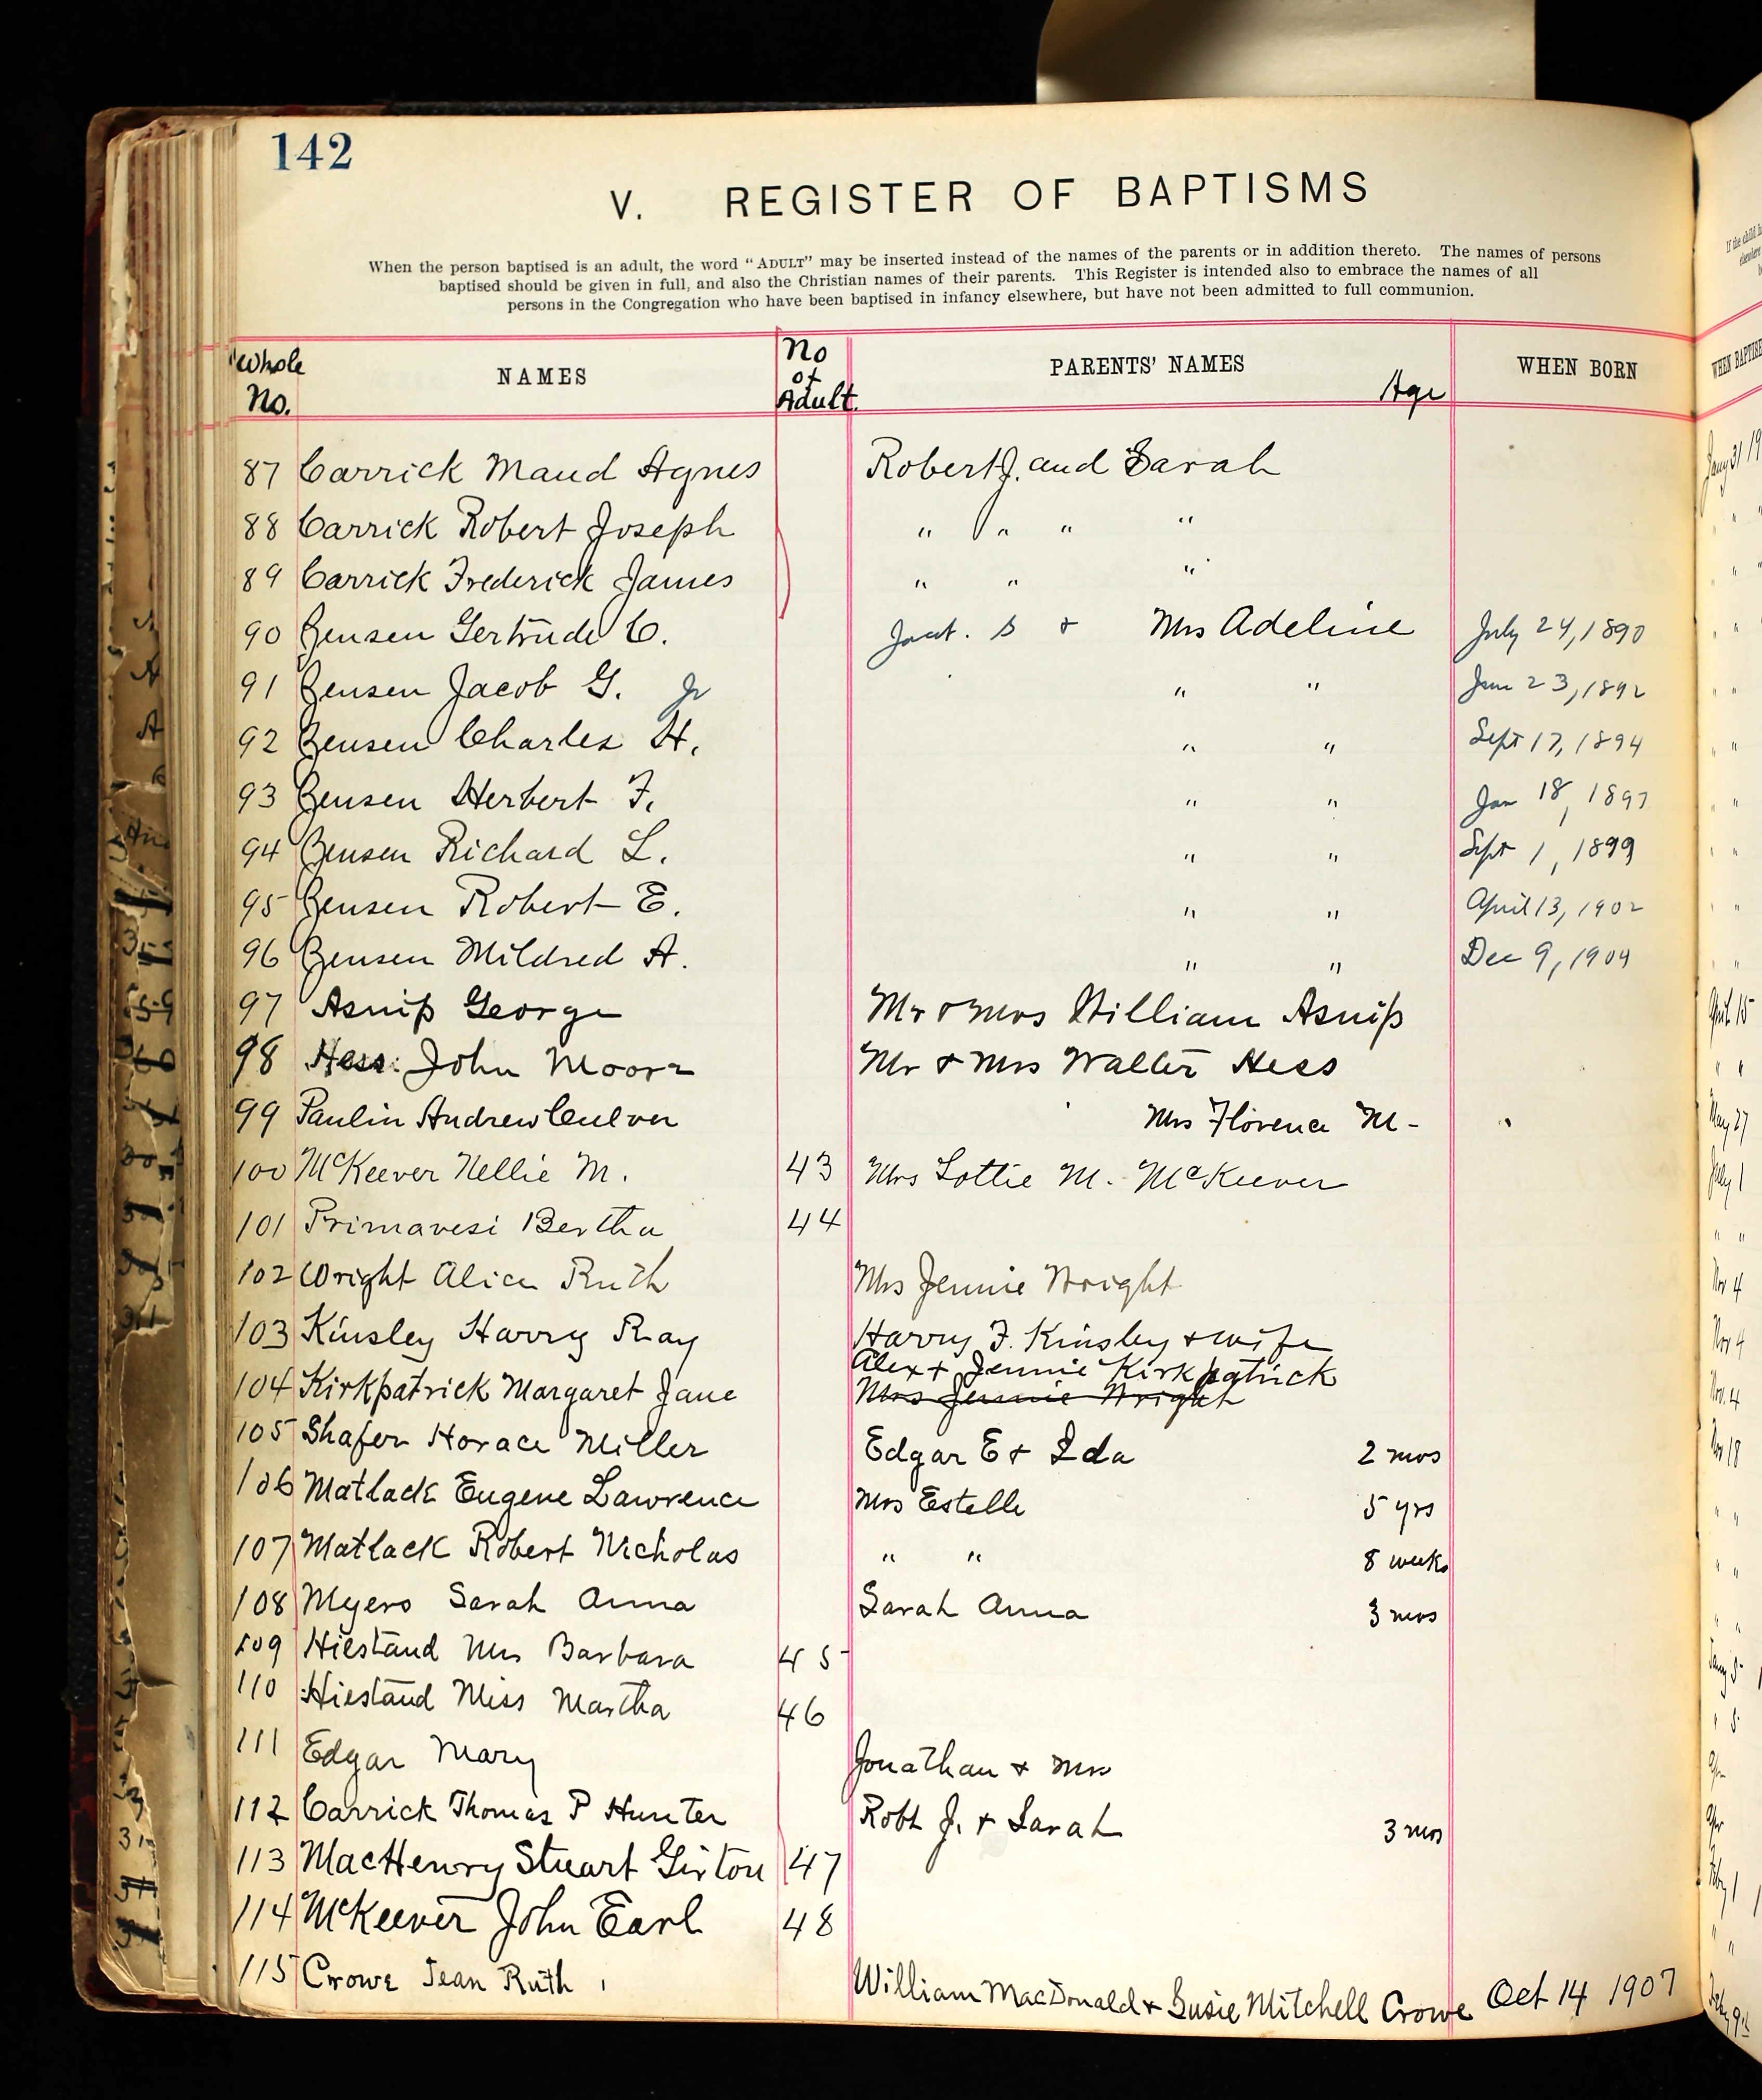 142
V. REGISTER OF BAPTISMS
When the person baptised is an adult, the word "ADULT" may be inserted instead of the names of the parents or in addition thereto. The names of persons
baptised should be given in full, and also the Christian names of their parents. This Register is intended also to embrace the names of all
persons in the Congregation who have been baptised in infancy elsewhere, but have not been admitted to full communion.
Whole No. NAMES No of Adult. PARENTS' NAMES Age WHEN BORN
87 Carrick Maud Agnes Robert J. and Sarah
88 Carrick Robert Joseph " " " "
89 Carrick Frederick James " " "
90 Jensen Gertrude C. & Mrs Adeline July 24, 1890
91 Jensen Jacob G. Jr " " 23, 1892
92 Jensen Charles H. " " Sept 17, 1894
93 Jensen Herbert F. " " Jan 18, 1897
94 Jensen Richard L. " " Sept 1, 1899
95 Jensen Robert E. " " April 13, 1902
96 Jensen Mildred A. " " Dec 9, 1904
97 Asnip George Mr & Mrs William Asnip
98 Hess John Moore Mr & Mrs Walter Hess
99 Paulin Andrew Culver Mrs Florence M-
100 McKeever Nellie M. 43 Mrs Lottie M. McKeever
101 Primavesi Bertha 44
102 Wright Alice Ruth Mrs Jennie Wright
103 Kinsley Harry Ray Harry F. Kinsley & wife
Alex & Jennie Kirkpatrick
104 Kirkpatrick Margaret Jane Mrs Jennie Wright
105 Shafer Horace Miller Edgar E & Ida 2 mos
106 Matlack Eugene Lawrence Mrs Estelle 5 yrs
107 Matlack Robert Nicholas " " 8 weeks
108 Myers Sarah Anna Sarah Anna 3 mos
109 Hiestand Mrs Barbara 45
110 Hiestand Miss Martha 46
111 Edgar Mary Jonathan & Mrs
112 Carrick Thomas P Hunter Robt J. & Sarah 3 mos
113 MacHenry Stuart Girton 47
114 McKeever John Earl 48
115 Crowe Jean Ruth William MacDonald & Susie Mitchell Crowe Oct 14 1907